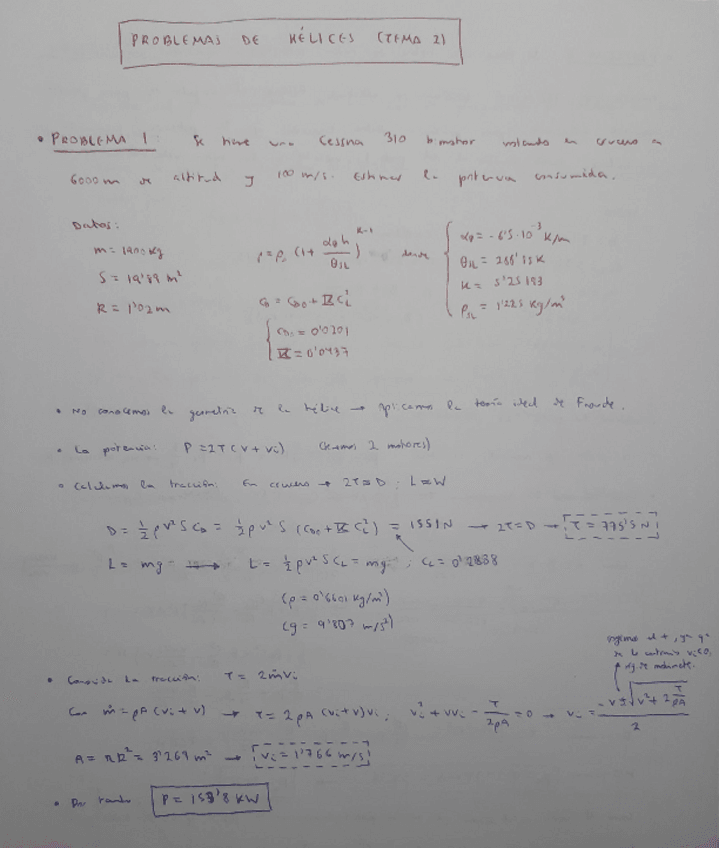 PROBLEMAS DE HÉLICES (TEMA 2)
• PROBLEMA 1: Se tiene una Cessna 310 bimotor volando en crucero a
6000 m de altitud y 100 m/s. Estimar la potencia consumida.
Datos:
m = 1900 kg
S = 19'89 m²
R = 1'02 m
ρ = ρ₀ (1 + αθ h / θSL)^(K-1) donde
CD = CD0 + K CL²
{ CD0 = 0'0201
K = 0'0437
{ αθ = -6'5·10⁻³ K/m
θSL = 288'15 K
K = 5'25193
ρSL = 1'225 kg/m³
• No conocemos la geometría de la hélice → aplicamos la teoría ideal de Froude.
• La potencia: P = 2T(V + Vi) (tenemos 2 motores)
• Calculamos la tracción: En crucero → 2T = D ; L = W
D = ½ρV²S CD = ½ρV²S (CD0 + K CL²) = 1551N → 2T = D → T = 775'5 N
L = mg → L = ½ρV²S CL = mg ; CL = 0'2838
(ρ = 0'6601 kg/m³)
(g = 9'807 m/s²)
• Conocida la tracción: T = 2ṁVi
Con ṁ = ρA (Vi + V) → T = 2ρA (Vi + V)Vi ; Vi² + VVi - T/2ρA = 0 → Vi = (-V ± √(V² + 2 T/ρA)) / 2
cogemos el +, ya que
de lo contrario Vi<0,
A = πR² = 3'269 m² → Vi = 1'766 m/s
• Por tanto P = 157'8 kW